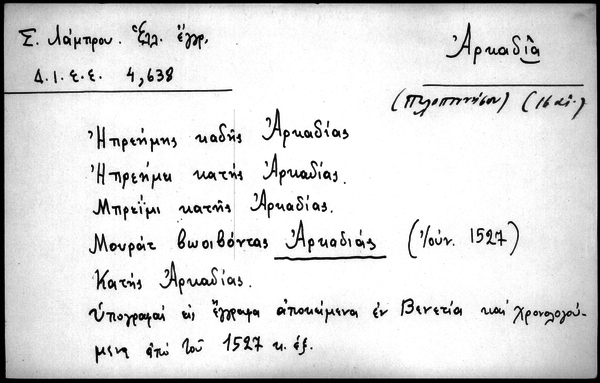 Σ. Λάμπρου. Ἑλλ. ἔγγρ.
Δ.Ι.Ε.Ε. 4,638
Ἀρκαδία
(Πελοποννήσου) (16 αἰ.)
Ἠπρεήμης καδῆς Ἀρκαδίας
Ἠπρεήμι κατής Ἀρκαδίας.
Μπρεΐμι κατῆς Ἀρκαδίας.
Μουράτ βωοιβόντας Ἀρκαδιάς (Ἰούν. 1527)
Κατῆς Ἀρκαδίας.
Ὑπογραφαί εἰς ἔγγραφα ἀποκείμενα ἐν Βενετίᾳ καί χρονολογού-
μενα ἀπό τοῦ 1527 κ. ἑξ.